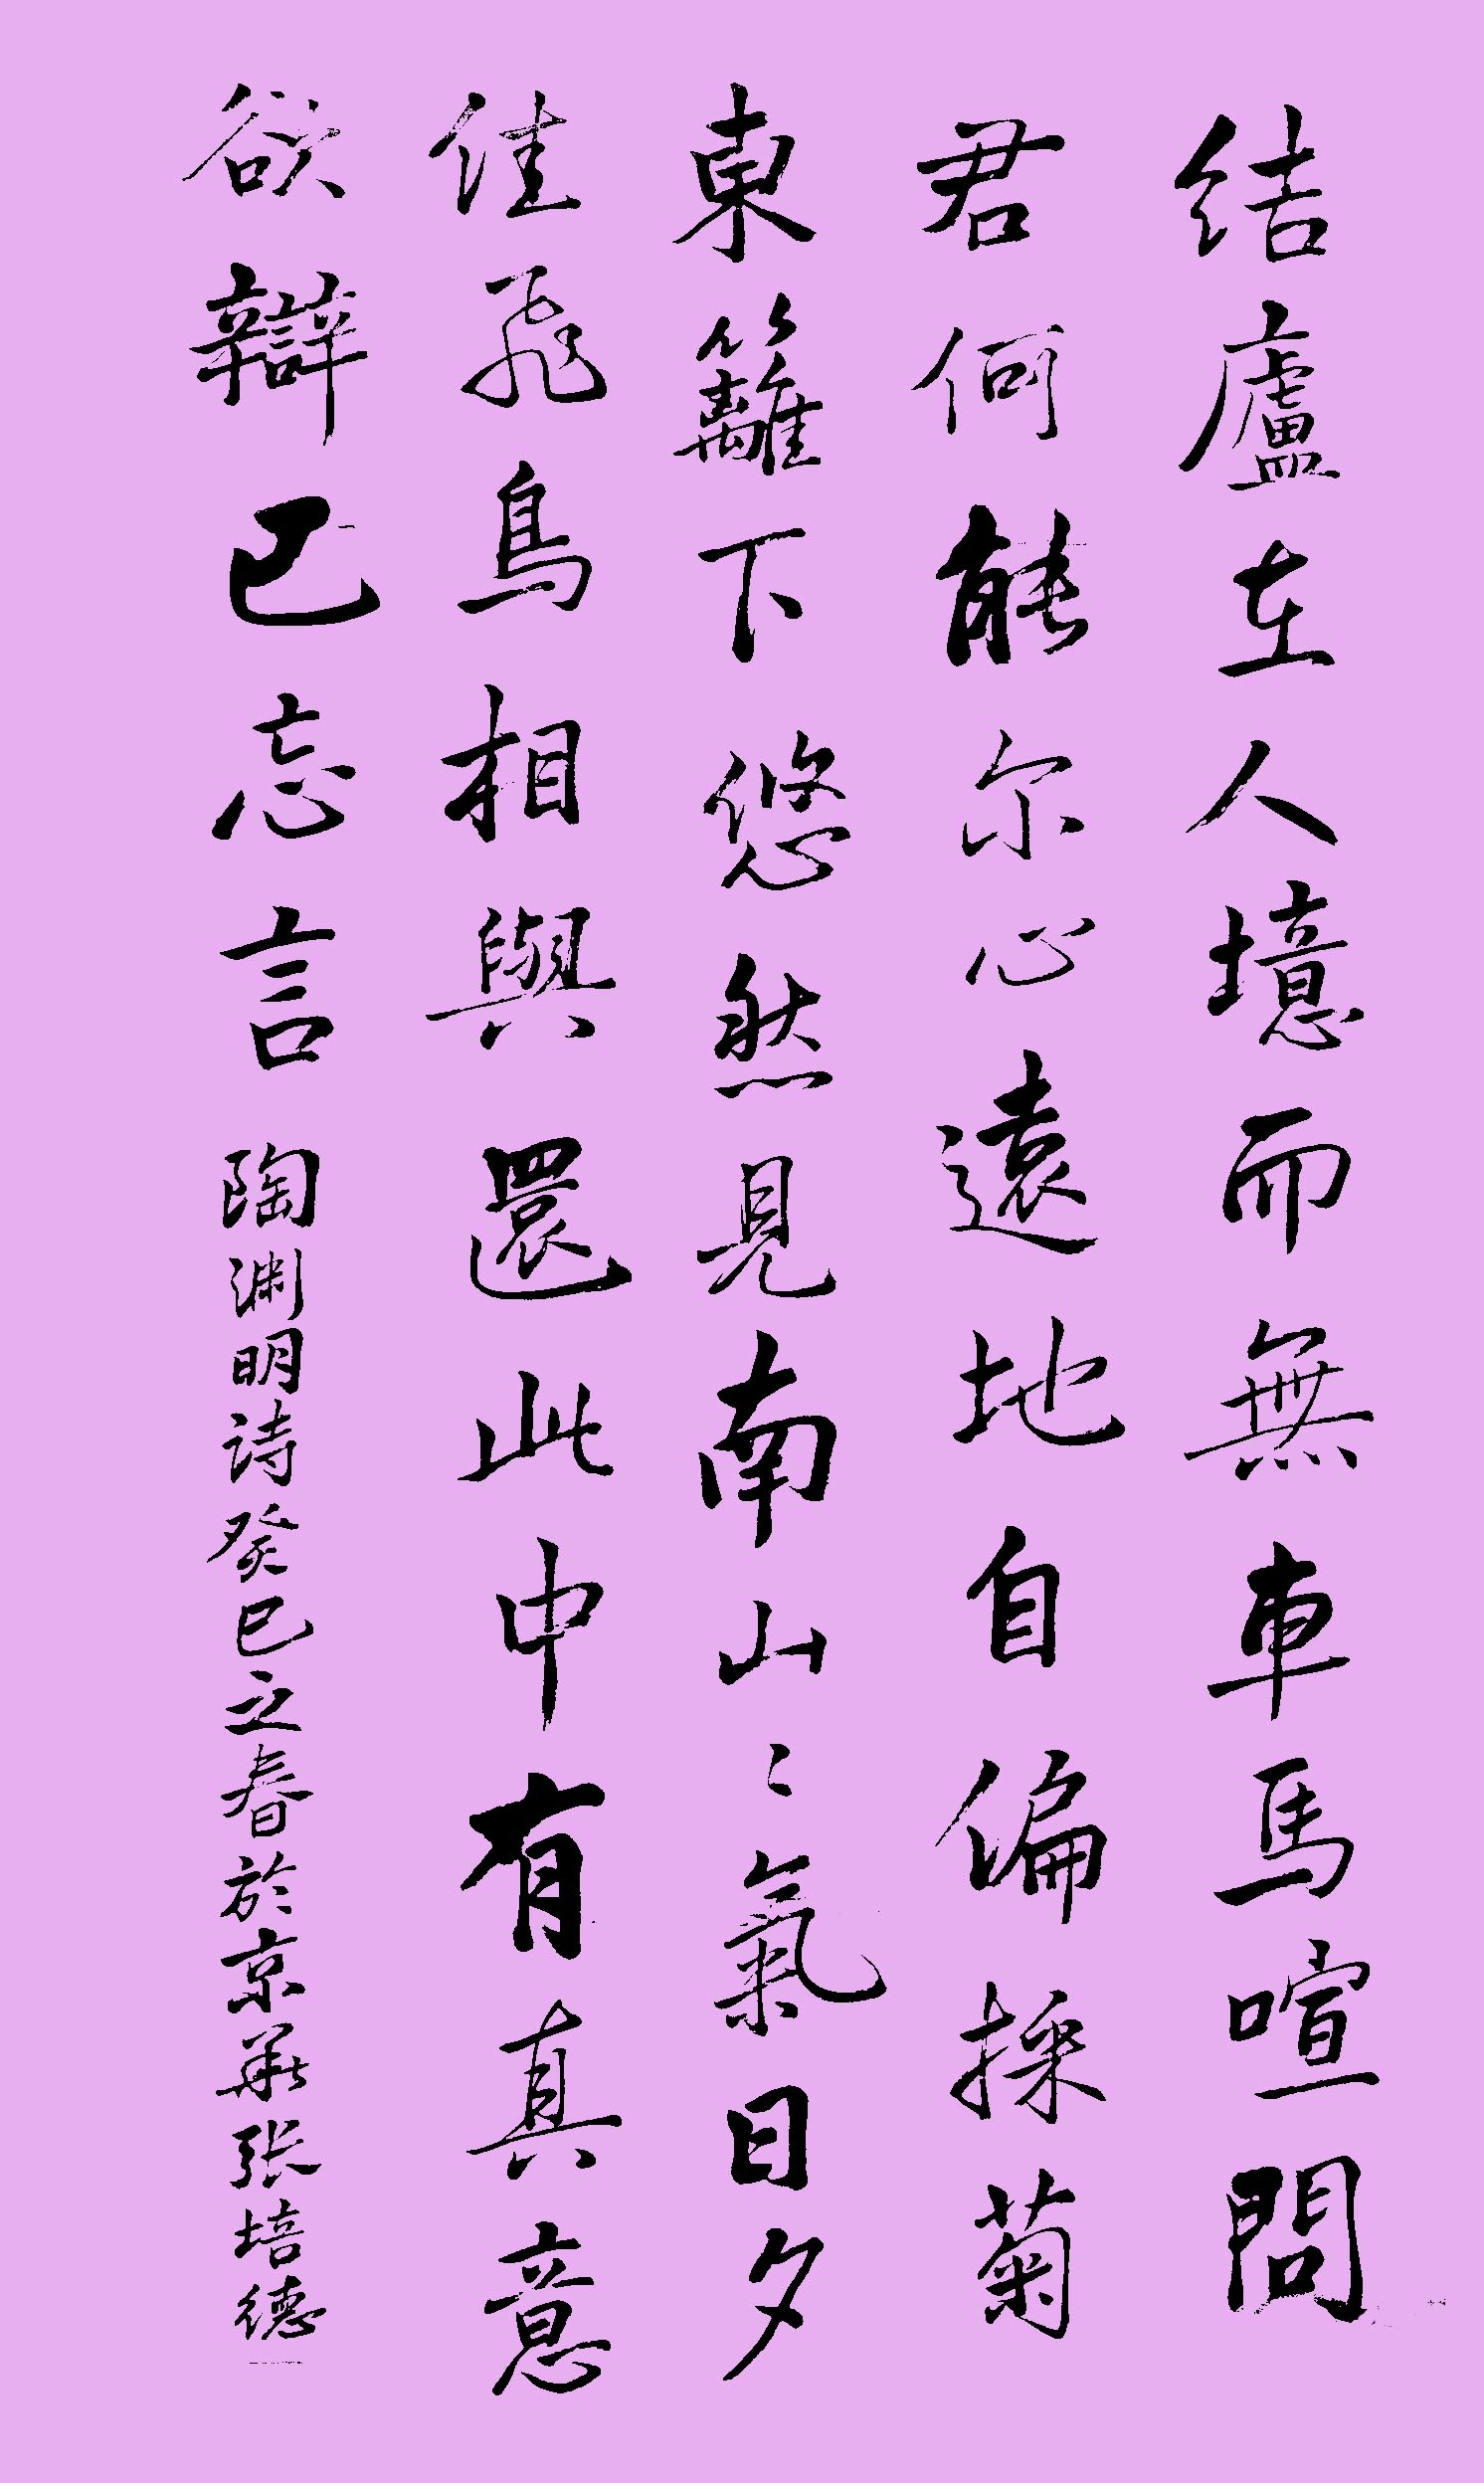 结廬在人境而無車馬喧問
君何能尔心遠地自偏採菊
東籬下悠然見南山山氣日夕
佳飛鳥相與還此中有真意
欲辯已忘言 陶渊明诗癸巳之春於京華张培德